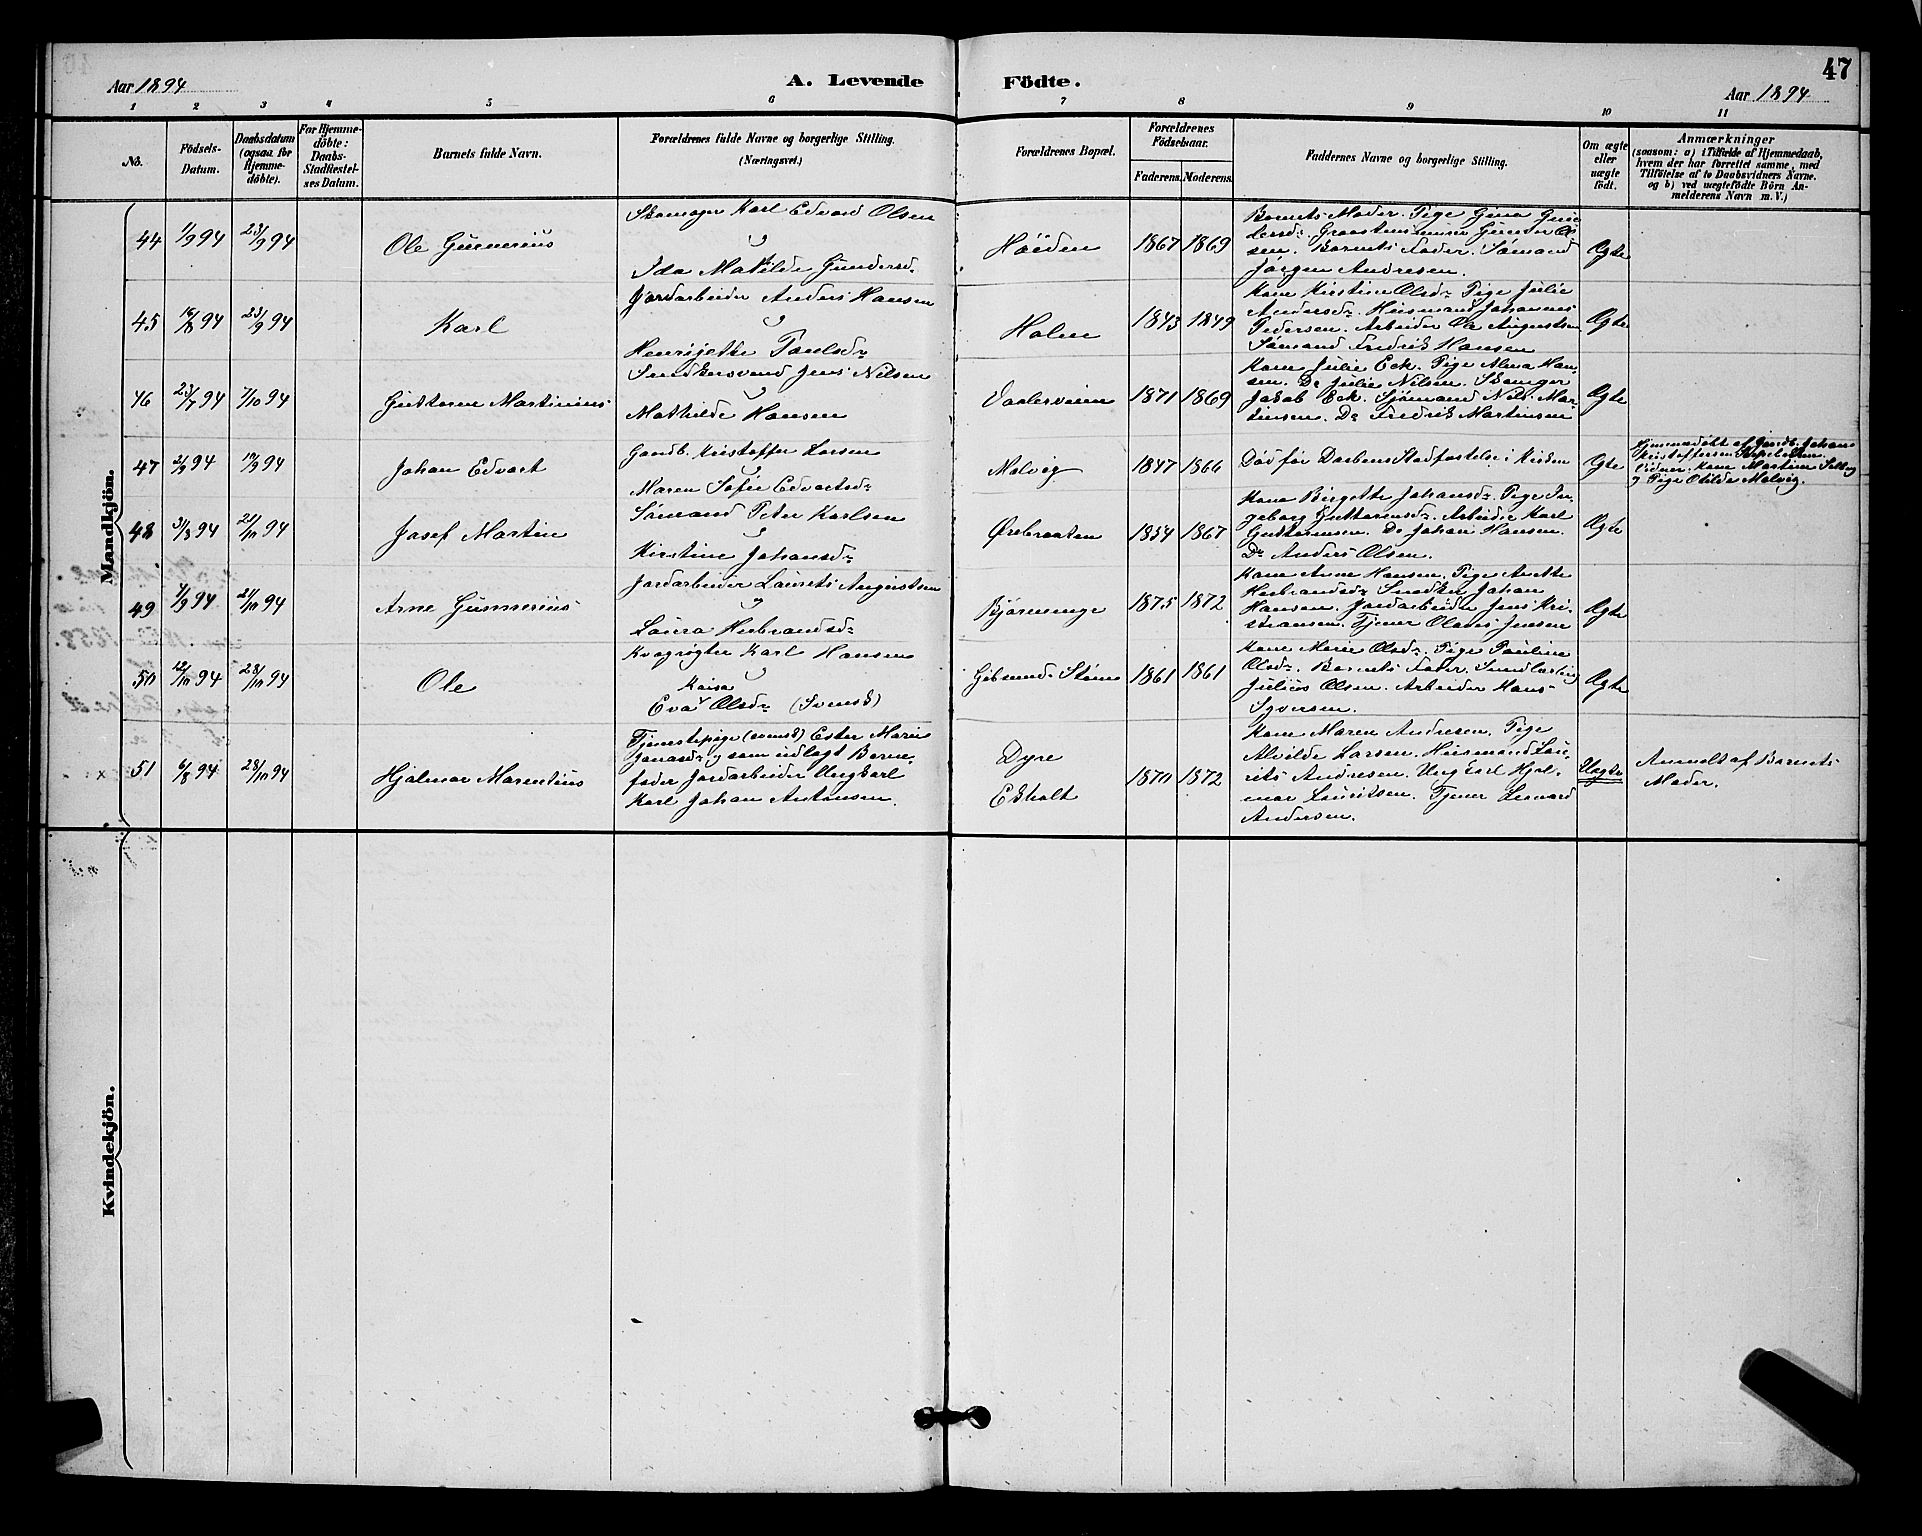 47
Aar 1894
A. Levende Födte.
Aar 1894
1 2 3 4 5 6 7 8 9 10 11
No.
Födsels-
Datum.
Daabsdatum
(ogsaa for
Hjemme-
döbte).
For Hjemme-
döbte:
Daabs-
Stadfæstel-
ses Datum.
Barnets fulde Navn.
Forældrenes fulde Navne og borgerlige Stilling.
(Næringsvei.)
Forældrenes Bopæl.
Forældrenes
Födselsaar.
Faderens. Moderens.
Faddernes Navne og borgerlige Stilling.
Om ægte
eller
uægte
födt.
Anmærkninger
(saasom: a) i Tilfælde af Hjemmedaab,
hvem der har forrettet samme, med
Tilföielse af to Daabsvidners Navne,
og b) ved uægtefödte Börn An-
melderens Navn m. V.)
Mandkjön.
44 1/9 94 23/9 94
Ole Gunnerius
Skomager Karl Edvard Olsen
Ida Matilde Gundersd.
Høiden
1867 1869
Barnets Moder. Pige Gina Gun-
dersd. Graastensmurer Gunder Ol-
sen. Barnets Fader. Sømand
Jørgen Andresen.
Ægte
45 16/8 94 23/9 94
Karl
Jordarbeider Anders Hansen
Henrijette Paulsd.
Holm
1843 1849
Kone Kirstine Olsd. Pige Julie
Andersd. Husmand Johannes
Pedersen. Arbeider Ole Augustsen
Sømand Fredrik Hansen
Ægte
46 23/7 94 7/10 94
Guttorm Martinius
Snedkersvend Jens Nilsen
Mathilde Hansen
Vaalerveien
1871 1869
Kone Julie Eck. Pige Alma Han-
sen. Do Julie Nilsen. Skomager
Jakob Eck. Sjømand Nils Mar-
tinsen. Do Fredrik Martinsen
Ægte
47 2/9 94 19/9 94
Johan Edvart
Gaardb. Kristoffer Larsen
Maren Sofie Edvartsd.
Molvig
1847 1866
Død før Daabens Stadfæstelse i Kirken
Ægte
Hjemmedøbt af Gaardb. Johan
Kristoffersen
Vidner: Kone Martine
og Pige Otilde Molvig.
48 31/8 94 21/10 94
Josef Martin
Sømand Peter Karlsen
Kirstine Johansd.
Ørebraaten
1854 1867
Kone Birgitte Johansd. Pige In-
geborg Guttormsd. Arbeider Karl
Guttormsen. Do Johan Hansen.
Do Anders Olsen.
Ægte
49 1/9 94 21/10 94
Arne Gunnerius
Jordarbeider Laurits Augustsen
og
Laura Herbrandsd.
Bjørnenge
1875 1872
Kone Anne Hansen. Pige Anette
Herbrandsd. Snedker Johan
Hansen. Jordarbeider Jens Kri-
stiansen. Tjener Olaves Jensen
Ægte
50 12/10 94 28/10 94
Ole
Kvægrøgter Karl Hansen
Kaisa
Eva Olsd. (Svensk)
1861 1861
Kone Marie Olsd. Pige Pauline
Olsd. Barnets Fader. Smedlærling
Julius Olsen. Arbeider Hans
Syversen.
Ægte
51 6/8 94 28/10 94
Hjalmar Marentius
Tjenestepige (svensk) Ester Marie
Jonasd. og som udlagt Barne-
fader Jordarbeider Ungkarl
Karl Johan Antonsen.
Dyre
Eskholt
1870 1872
Kone Maren Andresen. Pige
Alvilde Larsen. Husmand Lau-
rits Andresen. Ungkarl Hjal-
mar Lauritsen. Tjener Leonard
Andersen.
Uægte
Anmeldt af Barnets
Moder.
Kvindekjön.